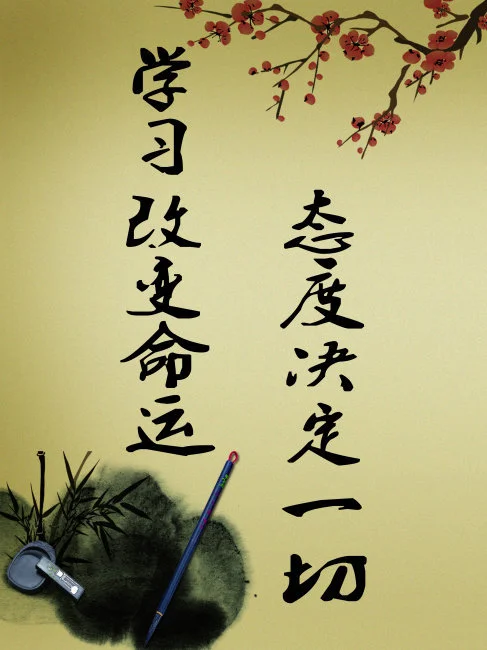 学习改变命运
态度决定一切